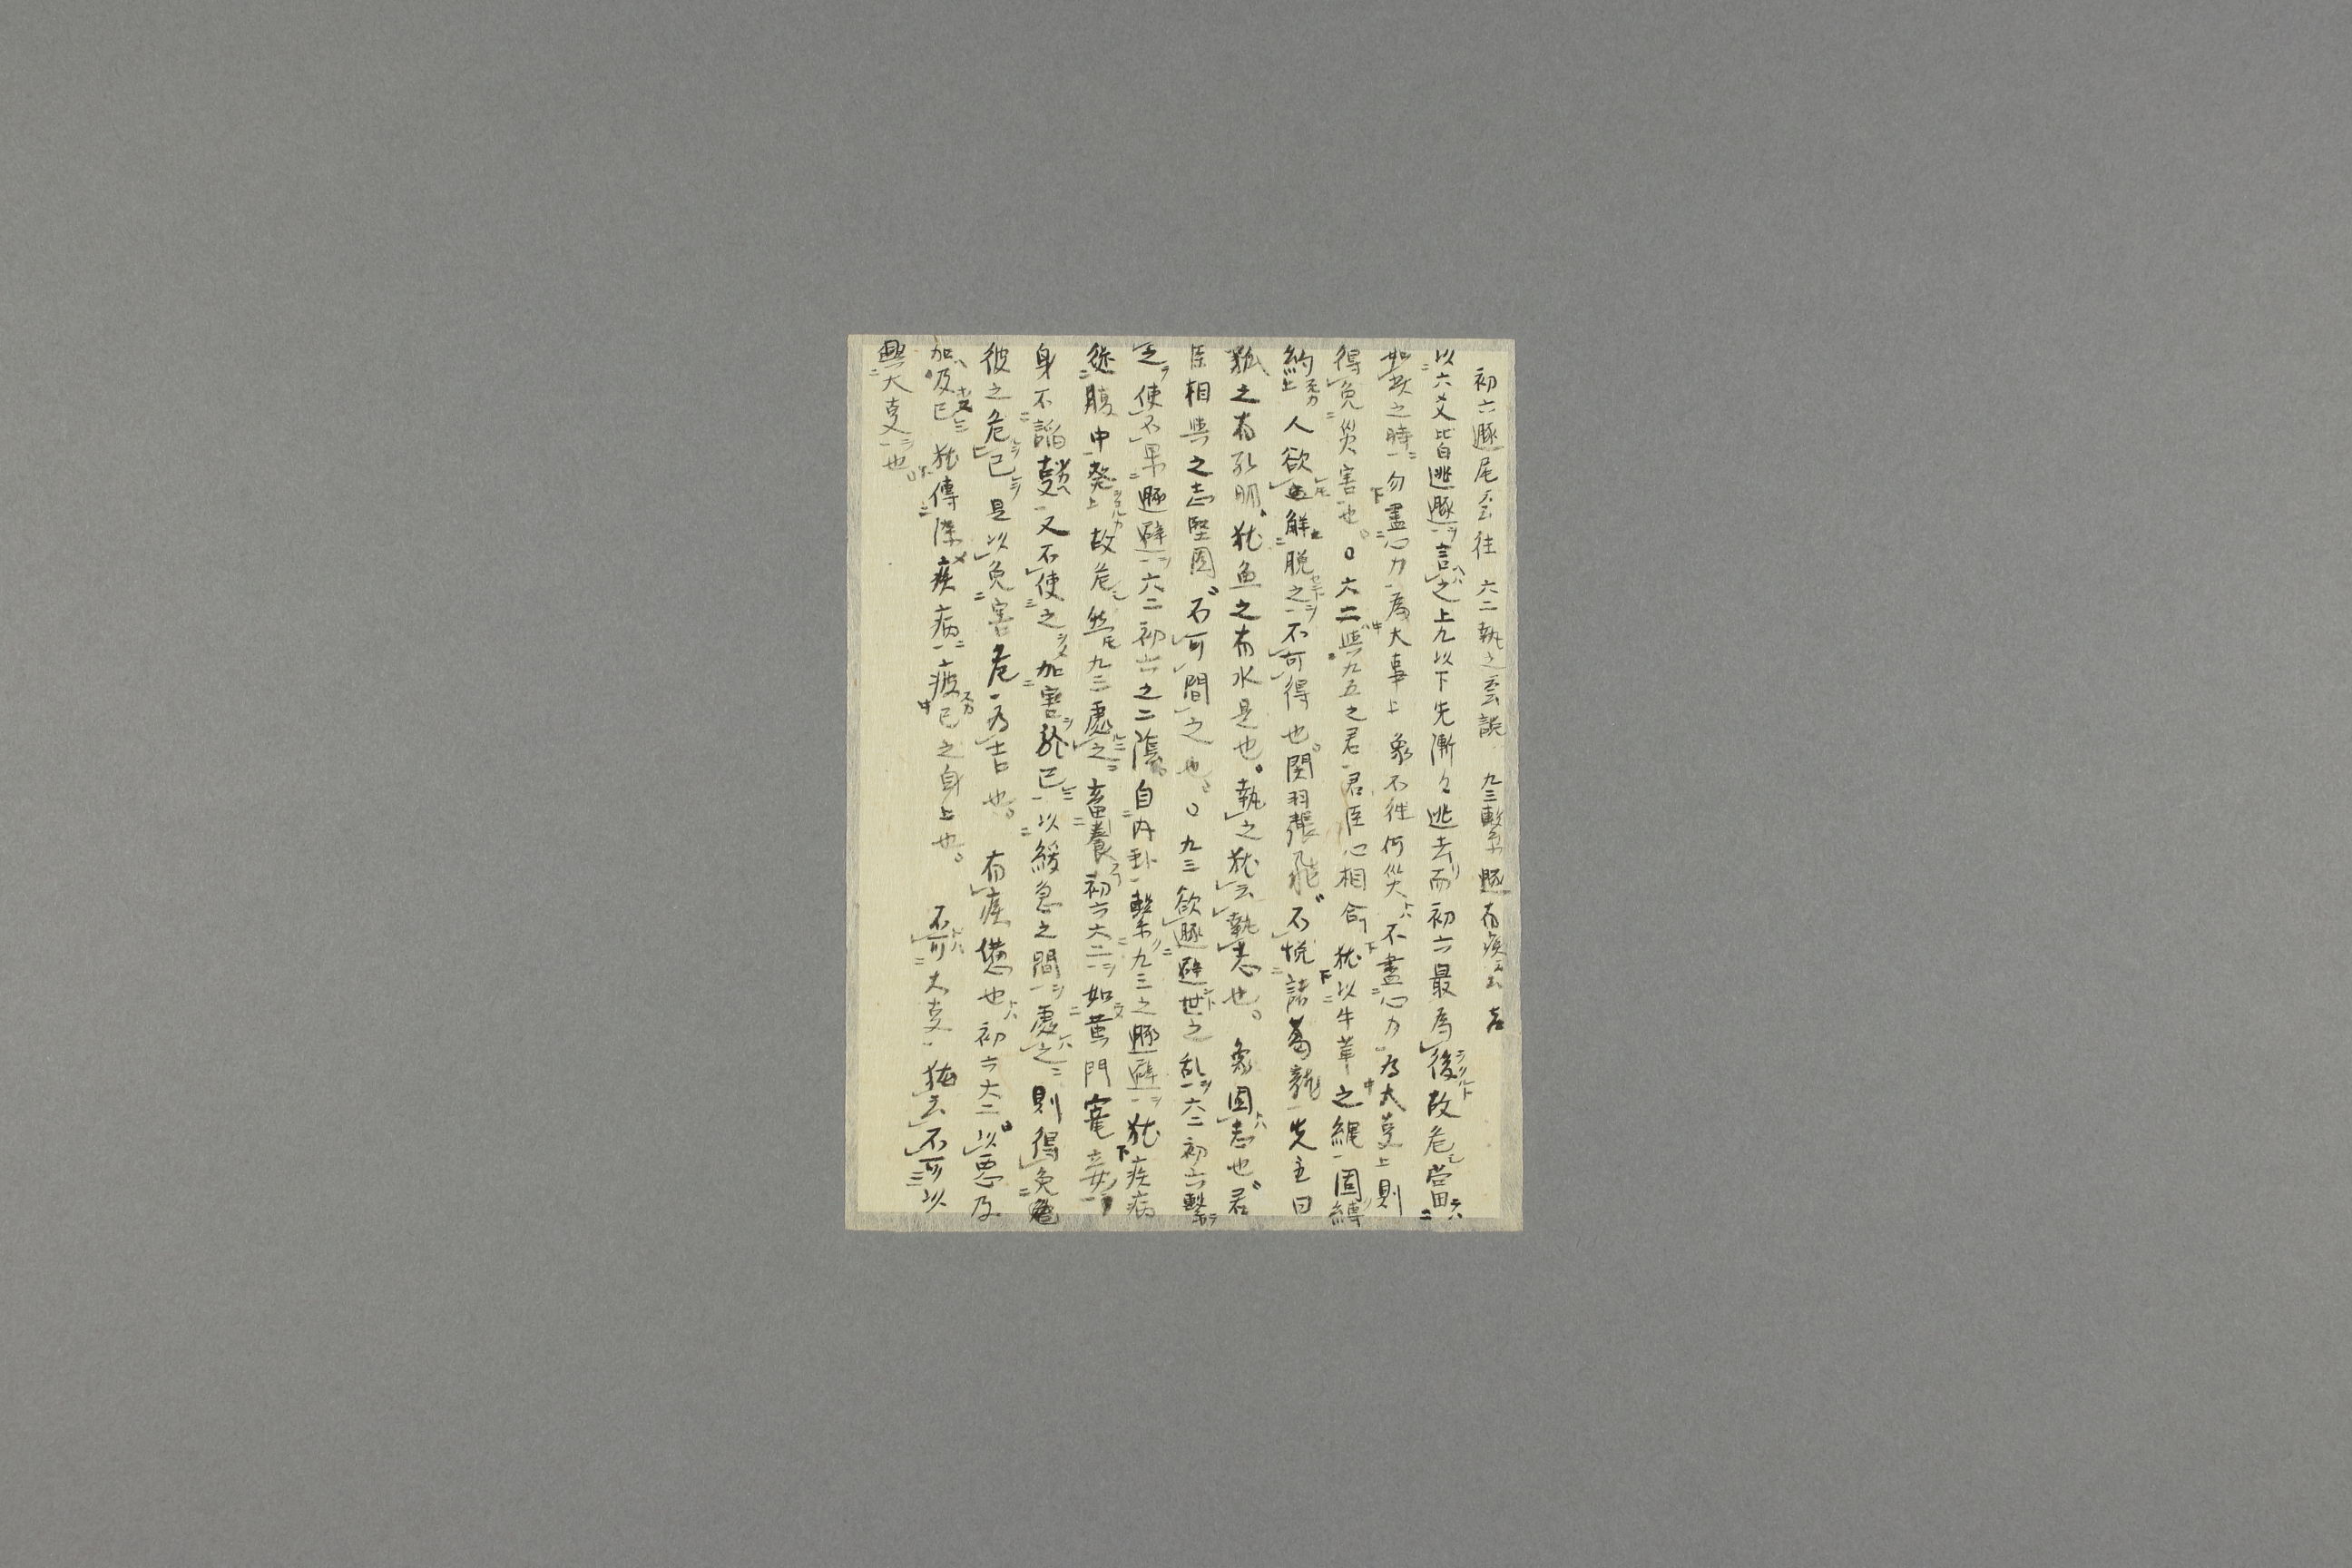 初六遯尾云云往 六二執之云云説 九三繋遯有疾云云吉
以六爻皆逃遯言之上九以下先漸々逃去而初六最為後故危當
如此之時勿盡心力為大事上象不往何災不盡心力為大事上則
得免災害也〇六二與九五之君君臣心相合猶以牛革之縄固縛
約人欲解脱之不可得也関羽張飛不悦諸葛龍先主曰
孤之有孔明猶魚之有水是也執之猶云執志也象固志也君
臣相與之志堅固不可間之也〇九三欲遯避世之乱六二初六繋
之使不果遯避六二初六之二陰自内卦繋九三之遯避猶疾病
從腹中発故危然九三處之畜養初六六二如黄門宦妾
身不諂又不使之加害於己以緩急之間處之則得免
彼之危己是以免害危為吉也有疾憊也初六六二以悪及
加及己猶傳染疾病疲己之身上也不可大事猶云不可以
與大事也